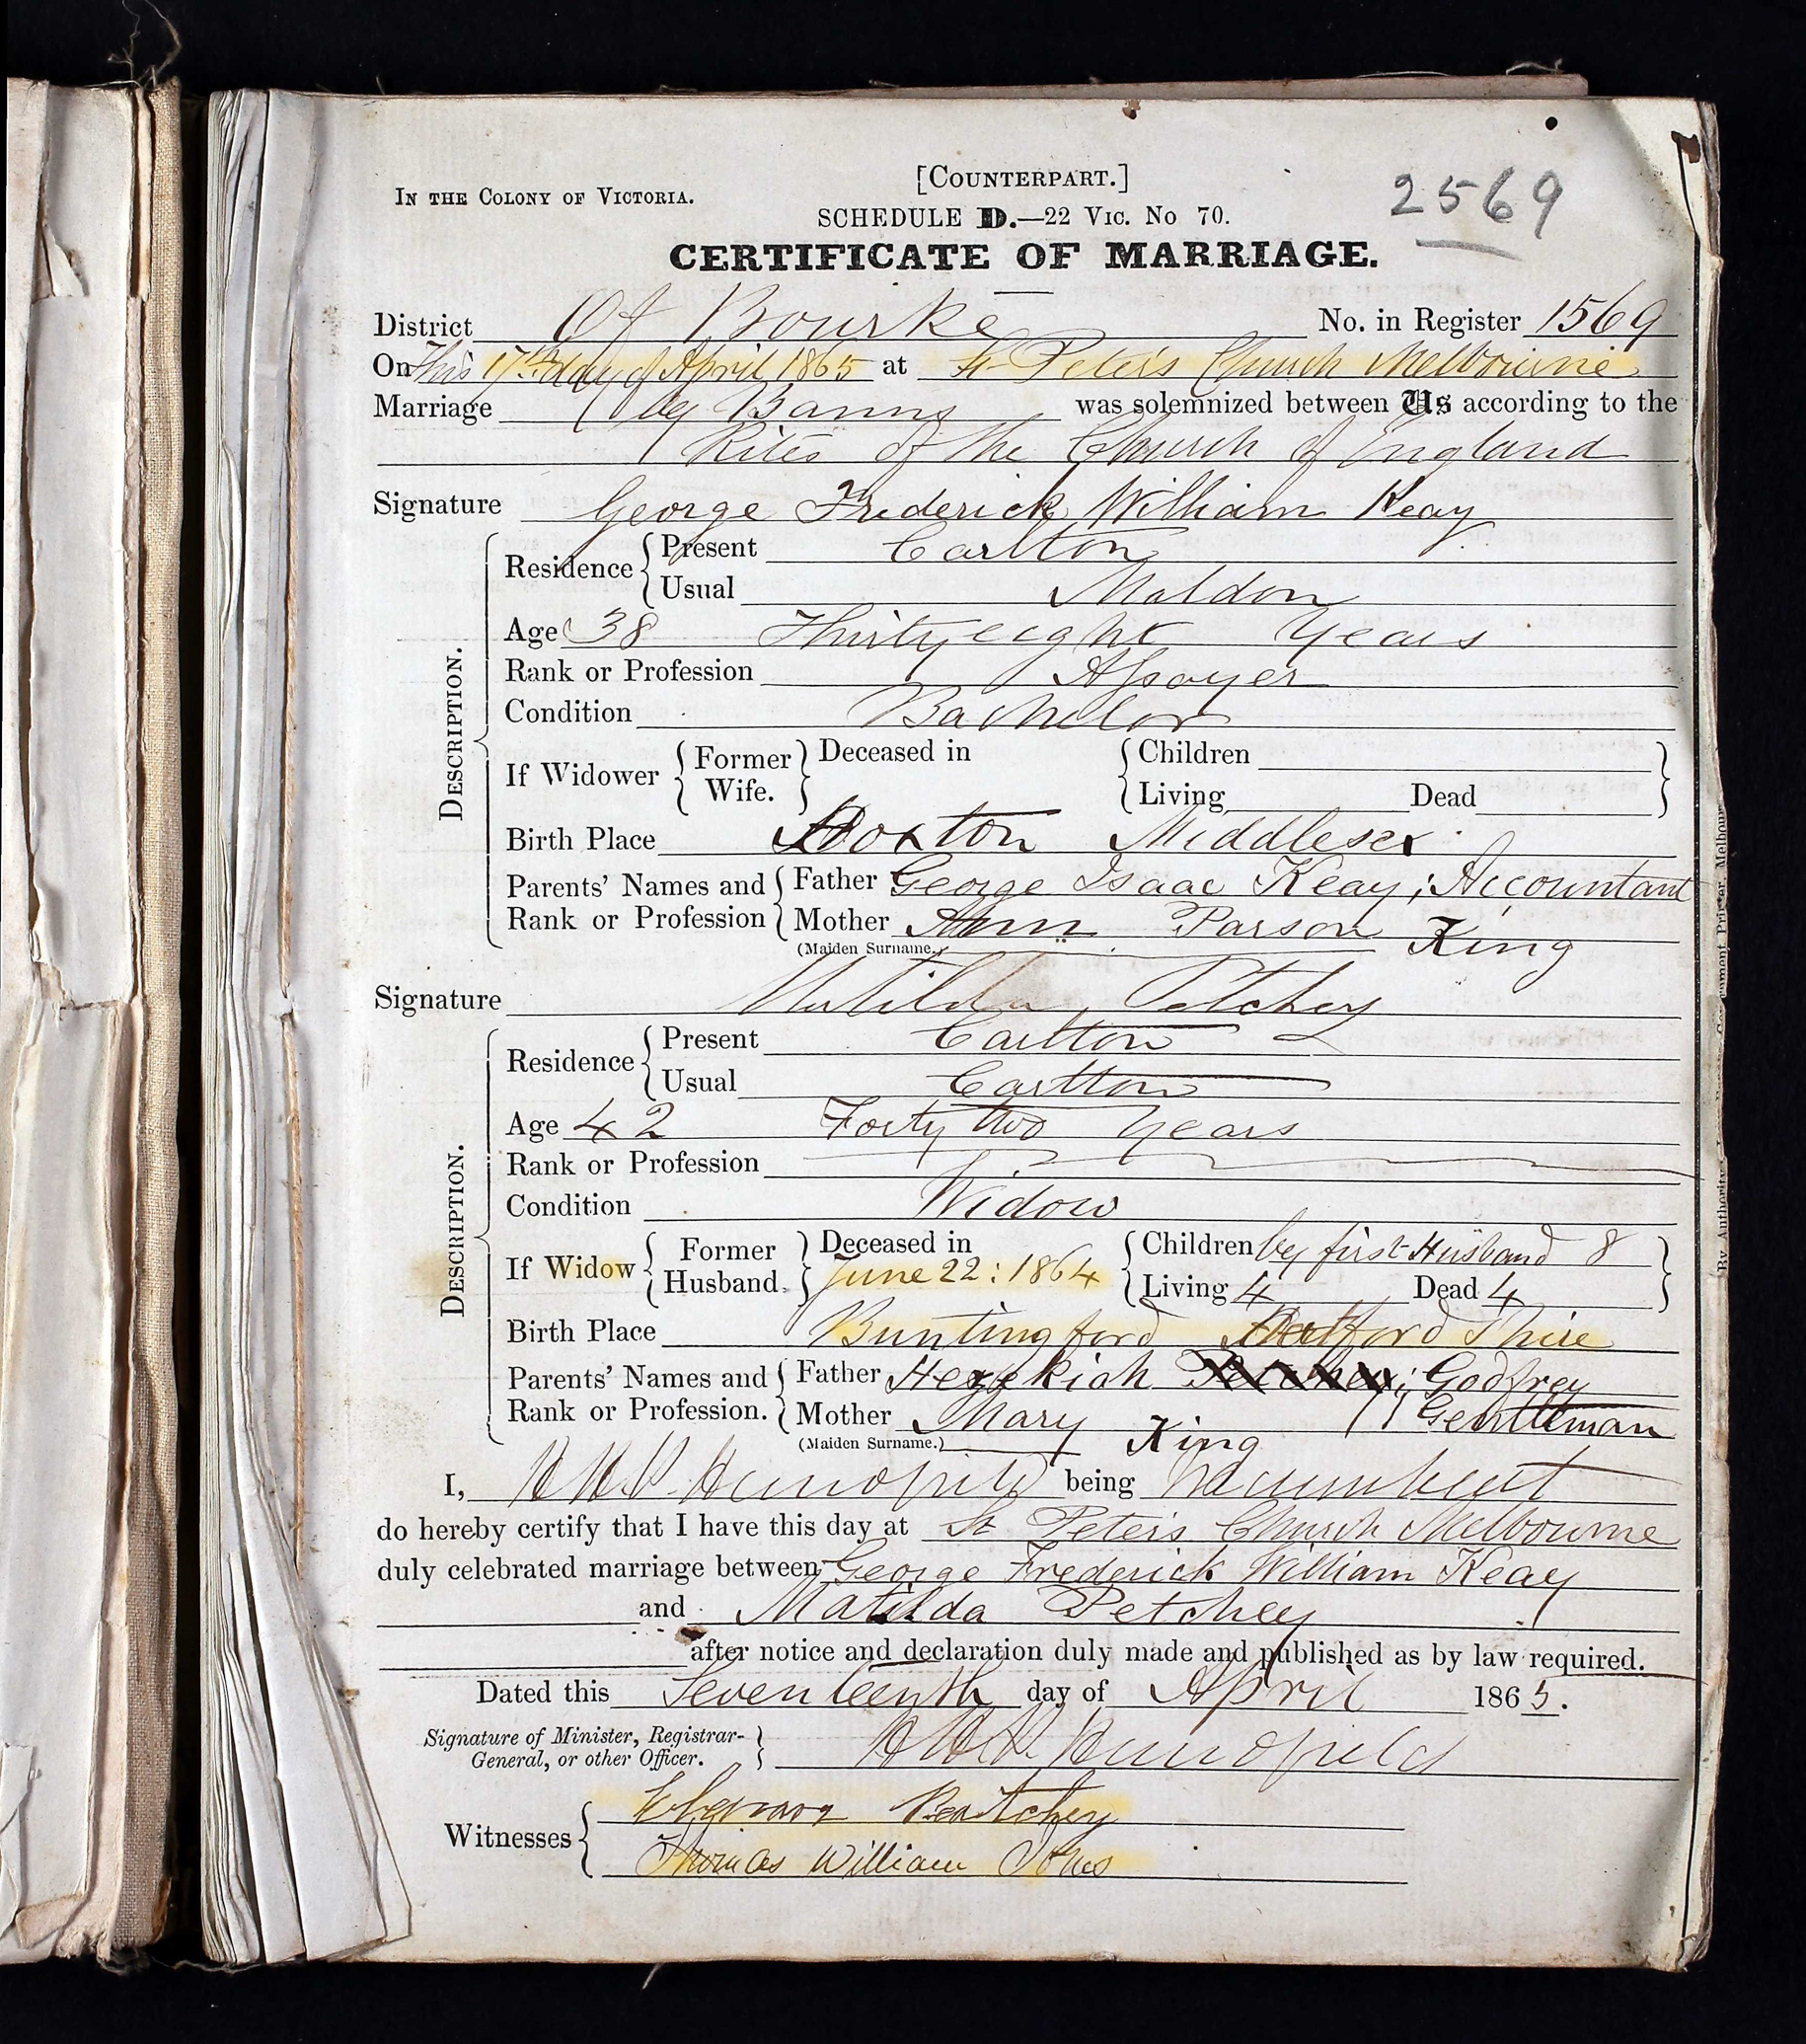 [COUNTERPART.]
IN THE COLONY OF VICTORIA.
2569
SCHEDULE D.—22 VIC. No 70.
CERTIFICATE OF MARRIAGE.
District Of Bourke No. in Register 1569
On This 17th day of April 1865 at St Peter's Church Melbourne
Marriage by Banns was solemnized between Us according to the
Rites of the Church of England
Signature George Frederick William Keay
DESCRIPTION.
Residence Present Carlton
Usual Maldon
Age 38 Thirty eight Years
Rank or Profession Assayer
Condition Bachelor
If Widower Former Wife. Deceased in Children
Living Dead
Birth Place Hoxton Middlesex
Parents' Names and Father George Isaac Keay; Accountant
Rank or Profession Mother Ann Parson King
(Maiden Surname.)
Signature Matilda Petchey
DESCRIPTION.
Residence Present Carlton
Usual Carlton
Age 42 Forty two Years
Rank or Profession
Condition Widow
If Widow Former Husband. Deceased in June 22: 1864 Children by first Husband 8
Living 4 Dead 4
Birth Place Buntingford Hertford Shire
Parents' Names and Father Hezekiah Godfrey
Rank or Profession. Mother Mary King Gentleman
(Maiden Surname.)
I, being Incumbent
do hereby certify that I have this day at St Peter's Church Melbourne
duly celebrated marriage between George Frederick William Keay
and Matilda Petchey
after notice and declaration duly made and published as by law required.
Dated this Seventeenth day of April 1865.
Signature of Minister, Registrar-
General, or other Officer.
Witnesses Petchey
Thomas William
By Authority: Government Printer, Melbourne